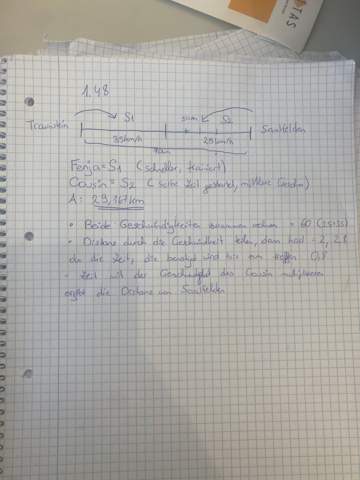 TAS
1.48
S1 S2
Traunstein Saalfelden
35km/h 25km/h
70km
Fenja = S1 (schneller, trainiert)
Cousin = S2 (selbe Zeit gestartet, mittlere Geschw.)
A: 29,167km
• Beide Geschwindigkeiten zusammen = 60 (25+35)
• Distanz durch die Geschwindigkeit teilen, dann
die Zeit, die benötigt wird bis zum treffen
• Zeit mit der Geschwindigkeit des Cousin multiplizieren
ergibt die Distanz von Saalfelden